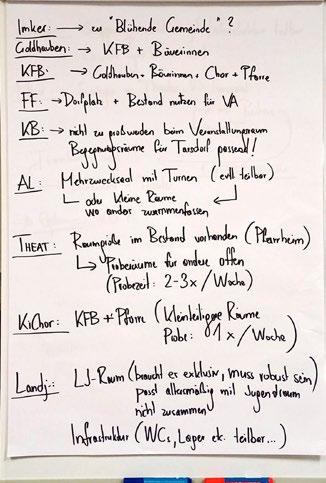 Imker: → zu "Blühende Gemeinde"?
Goldhauben: → KFB + Bäuerinnen
KFB: → Goldhauben + Bäuerinnen + Chor + Pfarre
FF: → Dorfplatz + Bestand nutzen für VA
KB: → nicht zu groß werden beim Veranstaltungsraum
Begegnungsräume für Tarsdorf passend!
AL: Mehrzwecksaal mit Turnen (evtl. teilbar)
↳ oder kleine Räume
wo anders zusammenfassen
THEAT: Raumgröße im Bestand vorhanden (Pfarrheim)
↳ Proberäume für andere offen
(Probezeit: 2-3x/Woche)
KiChor: KFB + Pfarre (Kleinteiligere Räume
Probe: 1x/Woche)
Landj.: LJ-Raum (braucht er exklusiv, muss robust sein)
passt altersmäßig mit Jugendraum
nicht zusammen
Infrastruktur (WCs, Lager etc. teilbar...)